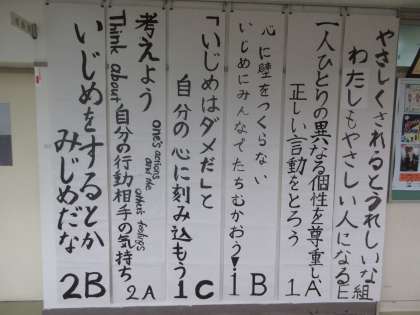 やさしくされるとうれしいな
わたしもやさしい人になる
E組
一人ひとりの異なる個性を尊重し
正しい言動をとろう
1A
心に壁をつくらない
いじめにみんなでたちむかおう!
1B
「いじめはダメだ」と
自分の心に刻み込もう
1C
考えよう
one's actions and the other's feelings
Think about 自分の行動相手の気持ち
2A
いじめをするとか
みじめだな
2B